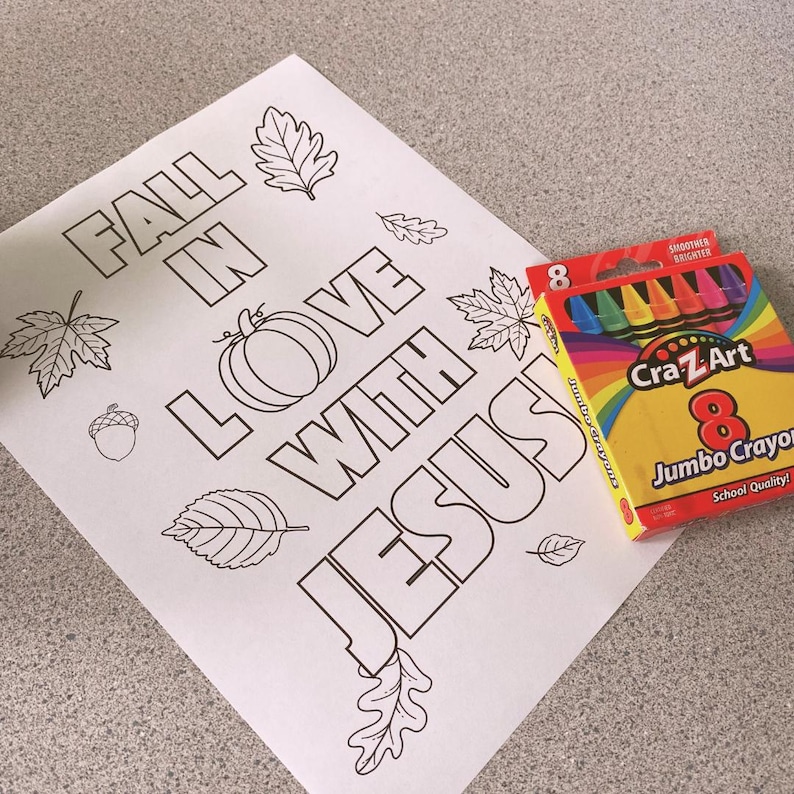 FALL
IN
LOVE
WITH
JESUS!
8
SMOOTHER
BRIGHTER
Cra-Z-Art
8
Jumbo Crayon
School Quality!
Jumbo Crayons
8